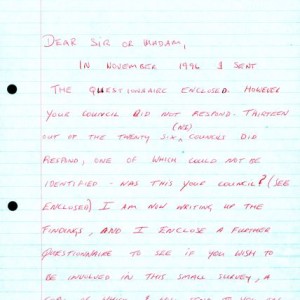 DEAR SIR OR MADAM,
IN NOVEMBER 1996 I SENT
THE QUESTIONNAIRE ENCLOSED. HOWEVER
YOUR COUNCIL DID NOT RESPOND. THIRTEEN
OUT OF THE TWENTY SIX COUNCILS DID
RESPOND, ONE OF WHICH COULD NOT BE
IDENTIFIED - WAS THIS YOUR COUNCIL? (SEE
ENCLOSED) I AM NOW WRITING UP THE
FINDINGS, AND I ENCLOSE A FURTHER
QUESTIONNAIRE TO SEE IF YOU WISH TO
BE INVOLVED IN THIS SMALL SURVEY, A
COPY OF WHICH I